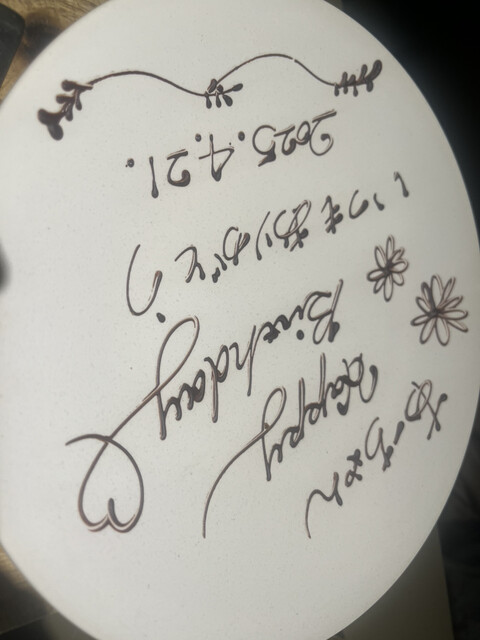 あーちゃん
Happy
Birthday
いつもありがとう
2025.4.21.